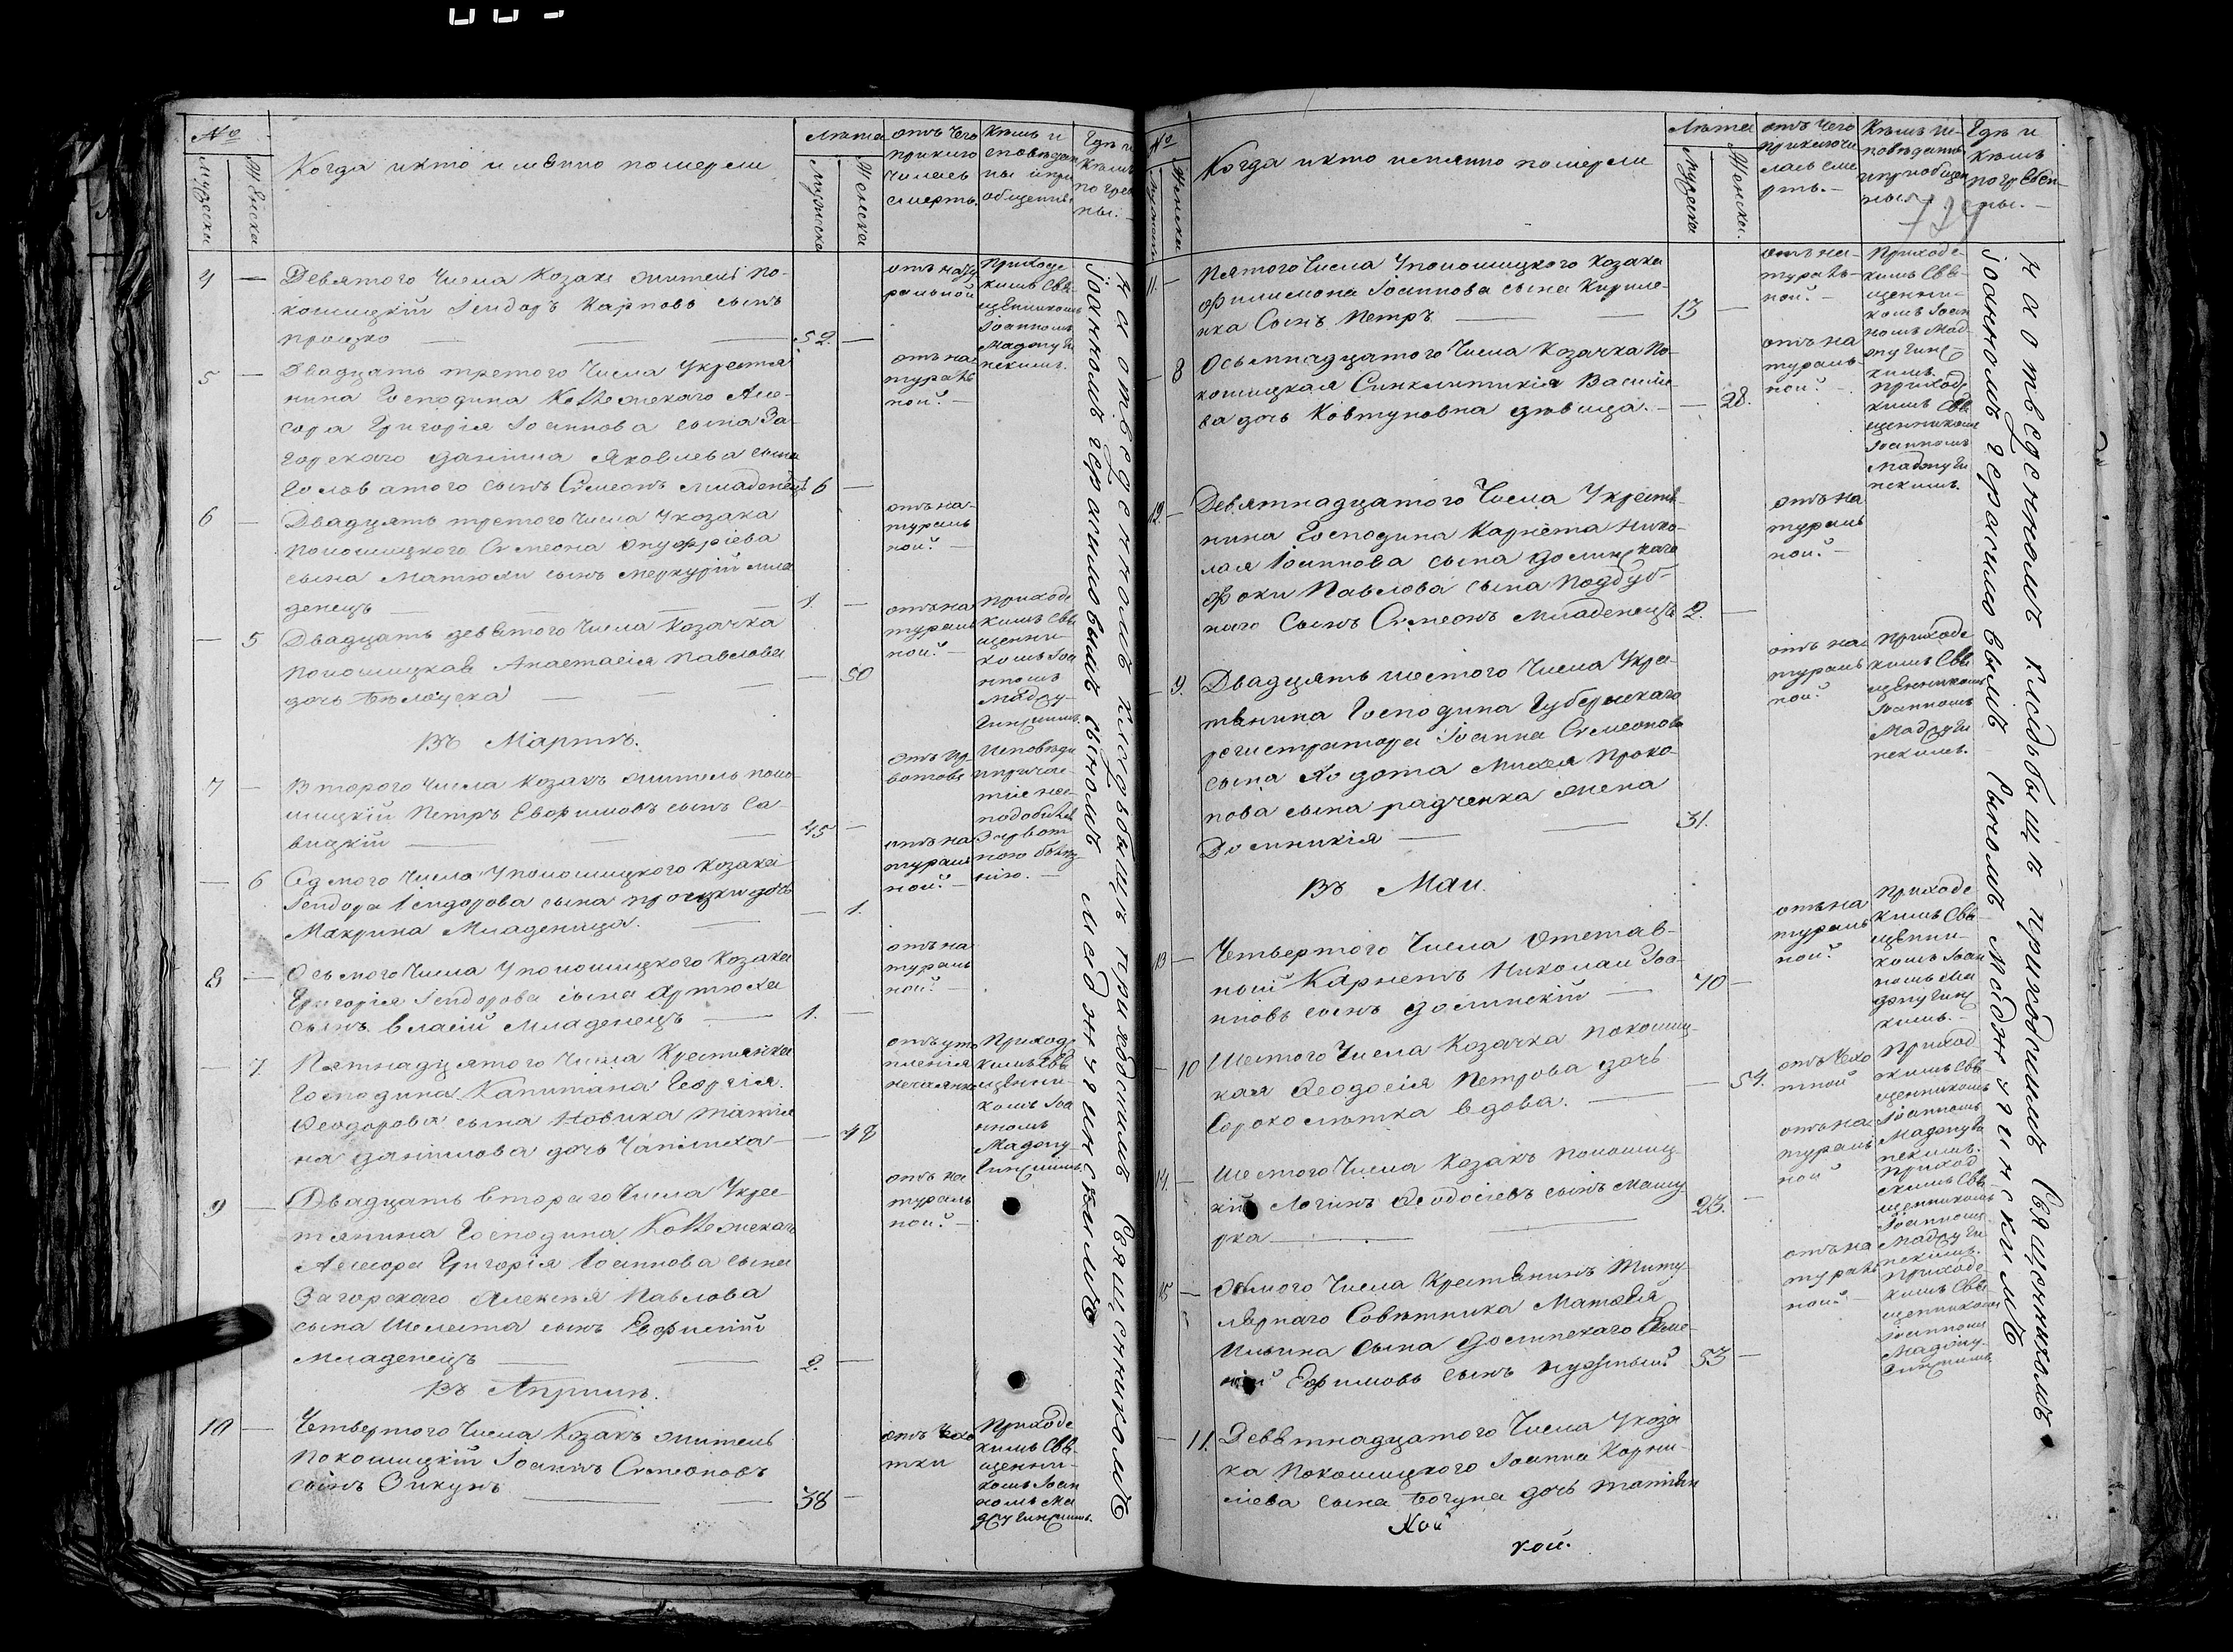 №
Мужска
Женска
Когда икто имянно померли
Лѣта
Мужска
Женска
отъ чего
приклю
чилась
смерть.
Кѣмъ и
споведан
ны ипри
общенны
Гдѣ и
Кѣмъ
погребе
ны.
4 —
Девятого Числа Козакъ житель По-
кошицкій Ісидоръ Карповъ сынъ
Процко — — 52. —
отъ нату
ральной
Приходс
кимъ Свя
щенникомъ
Іоанномъ
Мадзуги
нскимъ.
5 —
Двадцать третого Числа Укрестья
нина Господина Коллежскаго Асе-
сора Григорія Іоаннова сына За-
горскаго Даніила Яковлева сына
Головатого сынъ Симеонъ младенецъ 6 —
отъ на
тураль
ной. —
6 —
Двадцать третого Числа Укозака
Покошицкого Симеона Онуфріева
сына Матюхи сынъ Меркурій мла
денецъ — — — 1. —
отъ на-
тураль
ной. —
— 5
Двадцать девятого Числа Козачка
Покошицкая Анастасія Павлова
дочь Бѣлоуска — — — 50
отъ на
тураль
ной. —
Приходс
кимъ Свя
щенни-
комъ Іоа
нномъ
Мадзу-
гинскимъ.
Въ Мартѣ.
7 —
Второго Числа Козакъ житель поко
шицкій Петръ Ефимовъ сынъ Са-
вицкій — — 45 —
Исповѣди
ипричас-
тіе не
сподобился
Зарвот
ною болѣз
нію. —
— 6
Седмого Числа Упокошицкого Козака
Ісидора Ісидорова сына Процки дочь
Макрина Младеница. — — 1.
отъ на
тураль
ной. —
8 —
Осьмого Числа Упокошицкого Козака
Григорія Ісидорова сына Артюха
сынъ Власій Младенецъ — 1. —
отъ на
тураль
ной. —
— 7
Пятнадцятого Числа Крестьянка
Господина Капитана Георгія
Феодорова сына Новика Татія
на Даніилова дочь Чапліиха — — 48
отъ уто
пленія
нечаянно
Приходс
кимъ Свя
щенни-
комъ Іоа
нномъ
Мадзу-
гинскимъ.
9 —
Двадцать второго Числа Укрес-
тянина Господина Коллежскаго
Асесора Григорія Іоаннова сына
Загорскаго Алексѣя Павлова
сына Шелеста сынъ Евфимій
Младенецъ — — 2. —
отъ на
тураль
ной. —
Въ Априлѣ.
10 —
Четвертого Числа Козакъ житель
Покошицкій Іоаннъ Симеоновъ
сынъ Зикунъ — — 38 —
отъ Чахо
тки
Приходс
кимъ Свя-
щенни-
комъ Іоан
номъ Ма
дзугинскимъ.
На отведенномъ кладбищѣ приходскимъ Священникомъ
Іоанномъ Герасимовымъ сыномъ Мадзугинскимъ
№
Мужска
Женска
Когда икто имянно померли
Лѣта
Мужска
Женска.
отъ чего
приключи
лась сме
рть. —
Кѣмъ ис-
повѣданы
иприобщен
ны. —
Гдѣ и
Кѣмъ
погребен-
ны. —
11 —
Пятого Числа Упокошицкого Козака
Филимона Іоаннова сына Кирие-
нка Сынъ Петръ — — 13 —
отъ на-
тураль-
ной. —
Приходс-
кимъ Свя-
щенни-
комъ Іоан
номъ Мад-
зугинс-
кимъ.
— 8
Осьмнадцатого Числа Козачка По-
кошицкая Синклитикія Василие-
ва дочь Ковтуновна дѣвица. — — 28.
отъ на
тураль-
ной. —
Приходс
кимъ Свя
щенникомъ
Іоанномъ
Мадзуги
нскимъ.
12 —
Девятнадцатого Числа Укрестя-
нина Господина Карнета Нико-
лая Іоаннова сына Долинскаго
Фоки Павлова сына Поддуб-
наго Сынъ Симеонъ Младенецъ 2. —
отъ на
тураль
ной. —
— 9.
Двадцять шестого Числа Укрес-
тянина Господина Губернскаго
регистратора Іоанна Симеонова
сына Ходота Михея Проко-
пова сына радченка жена
Домникія — — 31.
отъ на
тураль
ной.
Приходс
кимъ Свя
щенникомъ
Іоанномъ
Мадзуги
нскимъ.
Въ Маи.
13 —
Четвертого Числа Отстав-
ной Карнетъ Николай Іоа-
нновъ сынъ Долинскій — 70 —
отъ на
тураль
ной.
Приходс
кимъ Свя-
щенни-
комъ Іоан
номъ Ма
дзугинс
кимъ. —
— 10
Шестого Числа Козачка Покошиц-
кая Феодосія Петрова дочь
Сороколѣтка вдова. — — 54.
отъ Чахо
тной
Приход
скимъ Свя-
щенникомъ
Іоанномъ
Мадзуги
нскимъ.
14. —
Шестого Числа Козакъ Покошиц-
кій Логинъ Феодосіевъ сынъ Машу
рка — — 23. —
отъ на
тураль
ной
Приход
скимъ Свя-
щенникомъ
Іоанномъ
Мадзуги
нскимъ.
15 —
Осьмого Числа Крестянинъ Титу-
лярнаго Совѣтника Матвѣя
Ильина Сына Долинскаго
Ефимовъ сынъ 53 —
отъ на
тураль
ной. —
Приходс
кимъ Свя-
щенникомъ
Іоанномъ
Мадзу-
гинскимъ
— 11.
Девятнадцатого Числа Укоза
ка Покошицкого Іоанна Корни-
лиева сына Богуна дочь Татіян
кой.
На отведенномъ кладбищѣ приходскимъ Священникомъ
Іоанномъ Герасимовымъ сыномъ Мадзугинскимъ